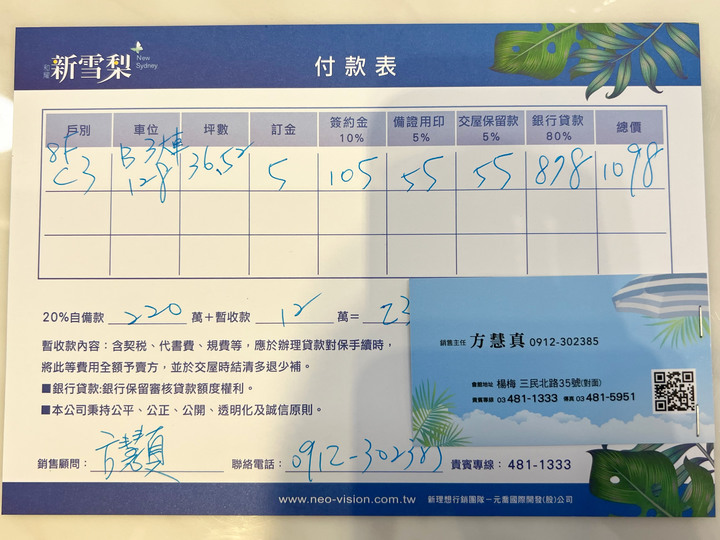 和耀 新雪梨 New Sydney
付款表
戶別 車位 坪數 訂金 簽約金 10% 備證用印 5% 交屋保留款 5% 銀行貸款 80% 總價
8F C3 B3 128 36.52 5 105 55 55 878 1098
20%自備款 220 萬+暫收款 12 萬= 23
暫收款內容:含契稅、代書費、規費等,應於辦理貸款對保手續時,
將此等費用全額予賣方,並於交屋時結清多退少補。
■銀行貸款:銀行保留審核貸款額度權利。
■本公司秉持公平、公正、公開、透明化及誠信原則。
銷售顧問: 方慧真 聯絡電話: 0912-302385 貴賓專線: 481-1333
www.neo-vision.com.tw 新理想行銷團隊-元喬國際開發(股)公司
銷售主任 方慧真 0912-302385
會館地址 楊梅 三民北路35號(對面)
貴賓專線 03 481-1333 傳真 03 481-5951